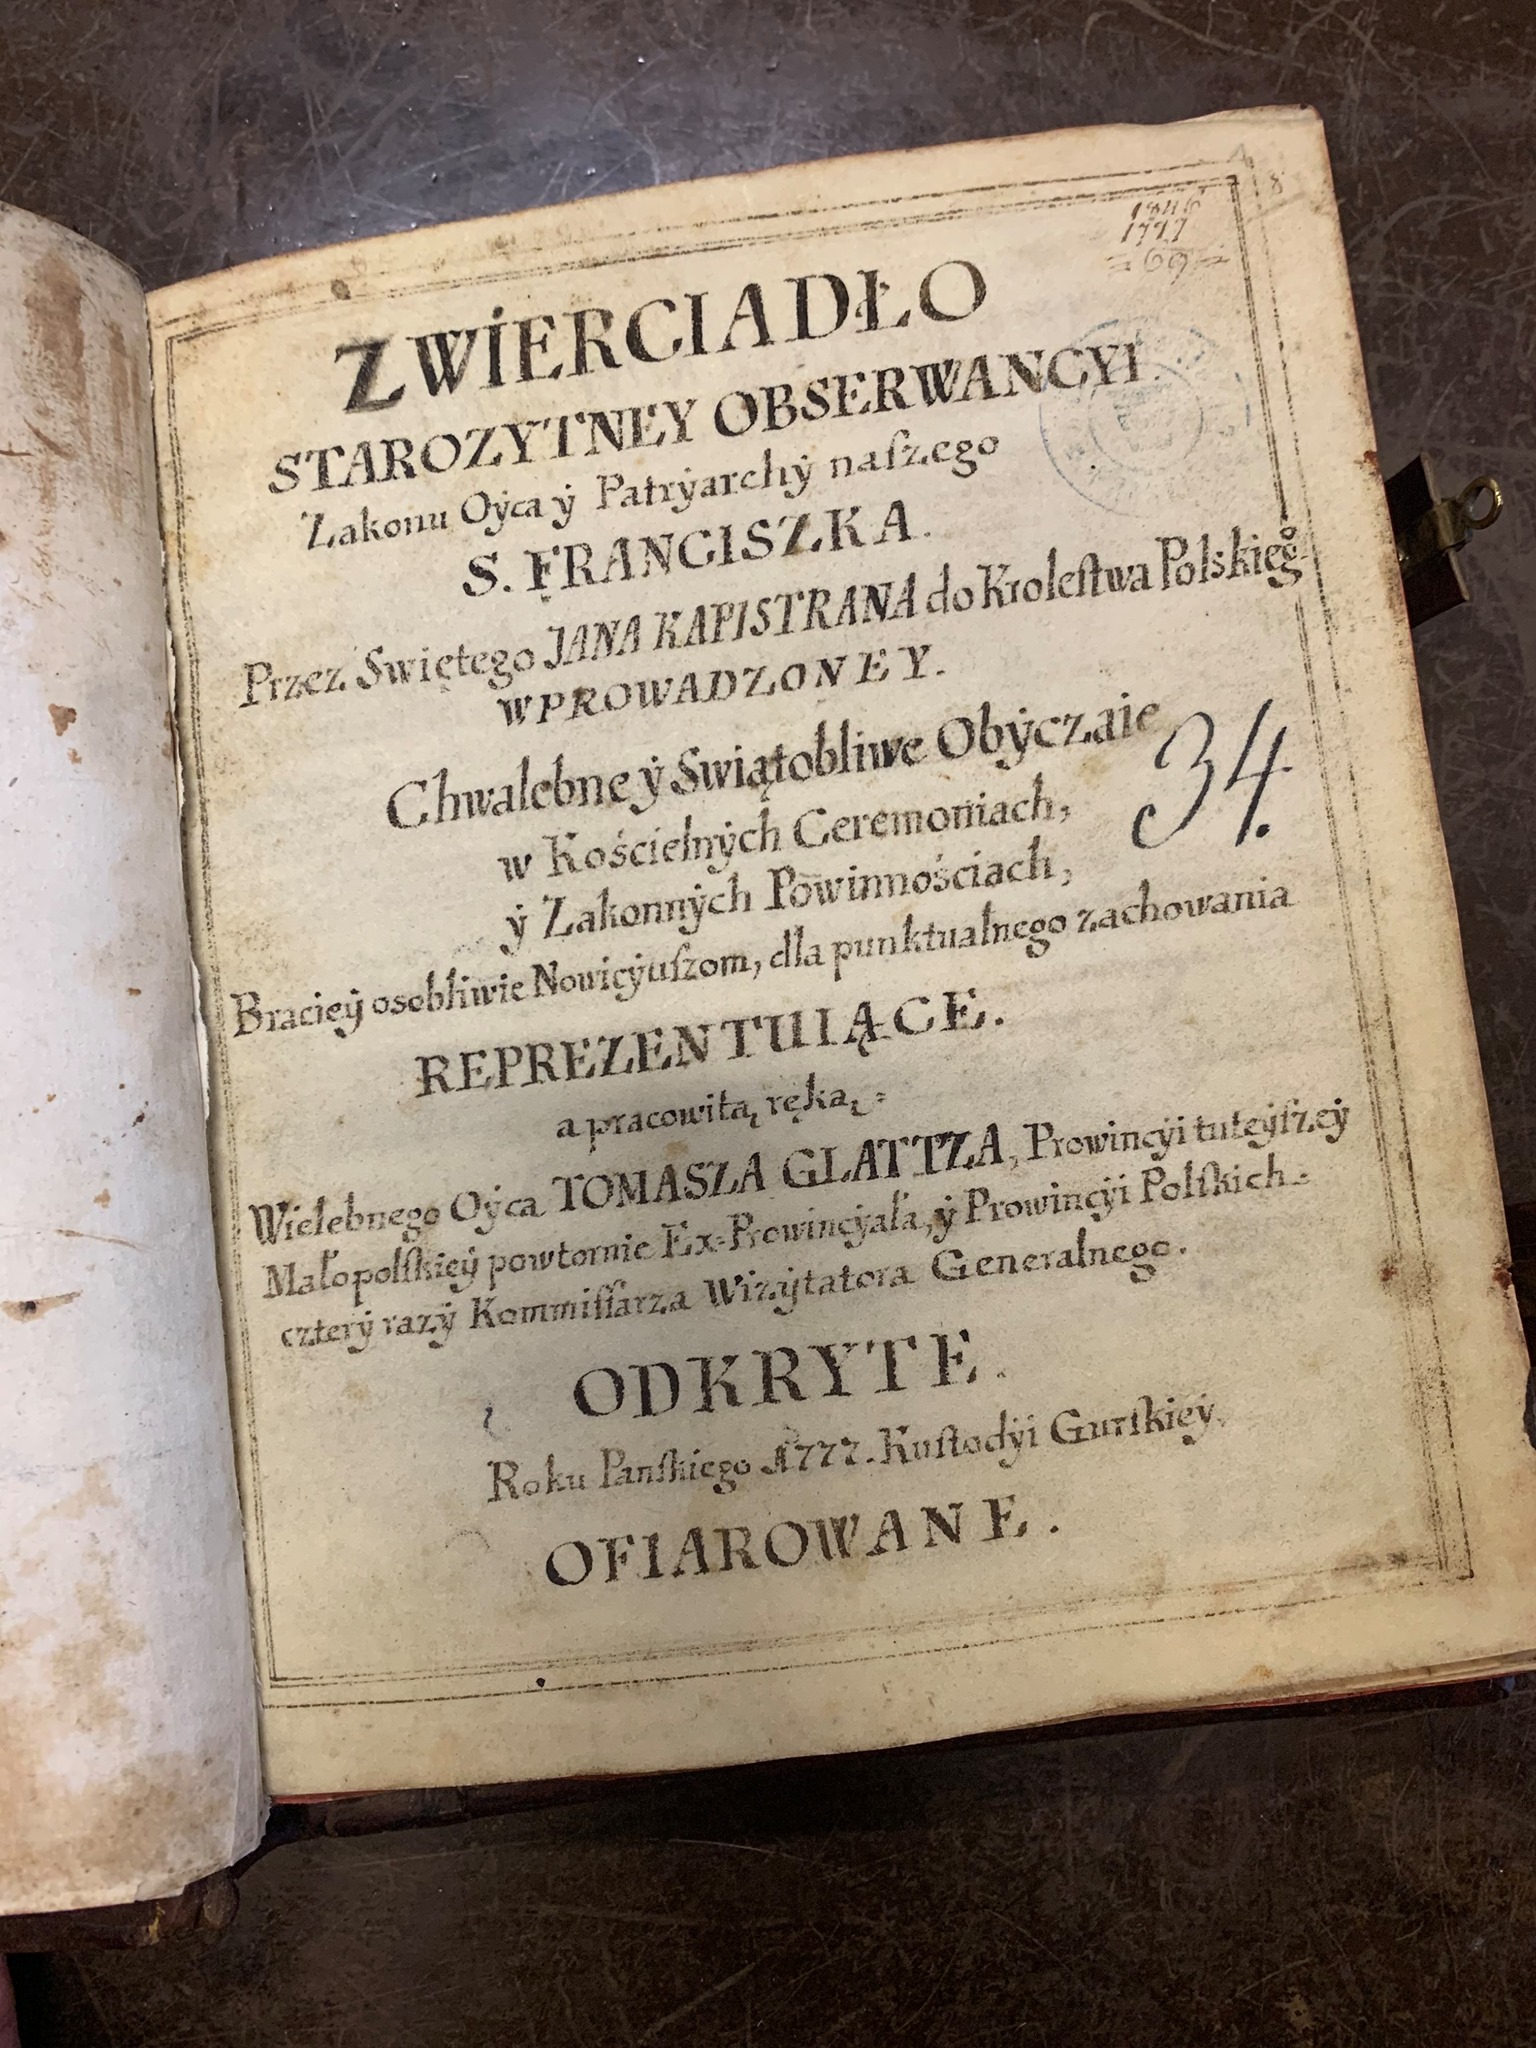 1846
1777
= 69 =
ZWIERCIADŁO
STAROZYTNEY OBSERWANCYI
Zakonu Oÿca ÿ Patrÿarchÿ naſzego
S. FRANCISZKA.
Przez Swiętego JANA KAPISTRANA do Kroleſtwa Polskieg̊
WPROWADZONEY.
Chwalebne ÿ Swiątobliwe Obÿczaie
34.
w Kościelnÿch Ceremoniach,
ÿ Zakonnÿch Powinnościach,
Bracieÿ osobliwie Nowicÿuſzom, dla punktualnego zachowania
REPREZENTUIĄCE.
a pracowitą ręką,
Wielebnego Oÿca TOMASZA GLATTZA, Prowincÿi tuteÿſzeÿ
Małopolſkieÿ powtornie Ex=Prowincÿała, ÿ Prowincÿi Polſkich=
czterÿ razÿ Kommiſſarza Wizÿtatora Generalnego.
ODKRYTE.
Roku Panſkiego 1777. Kuſtodÿi Gurſkieÿ.
OFIAROWANE.